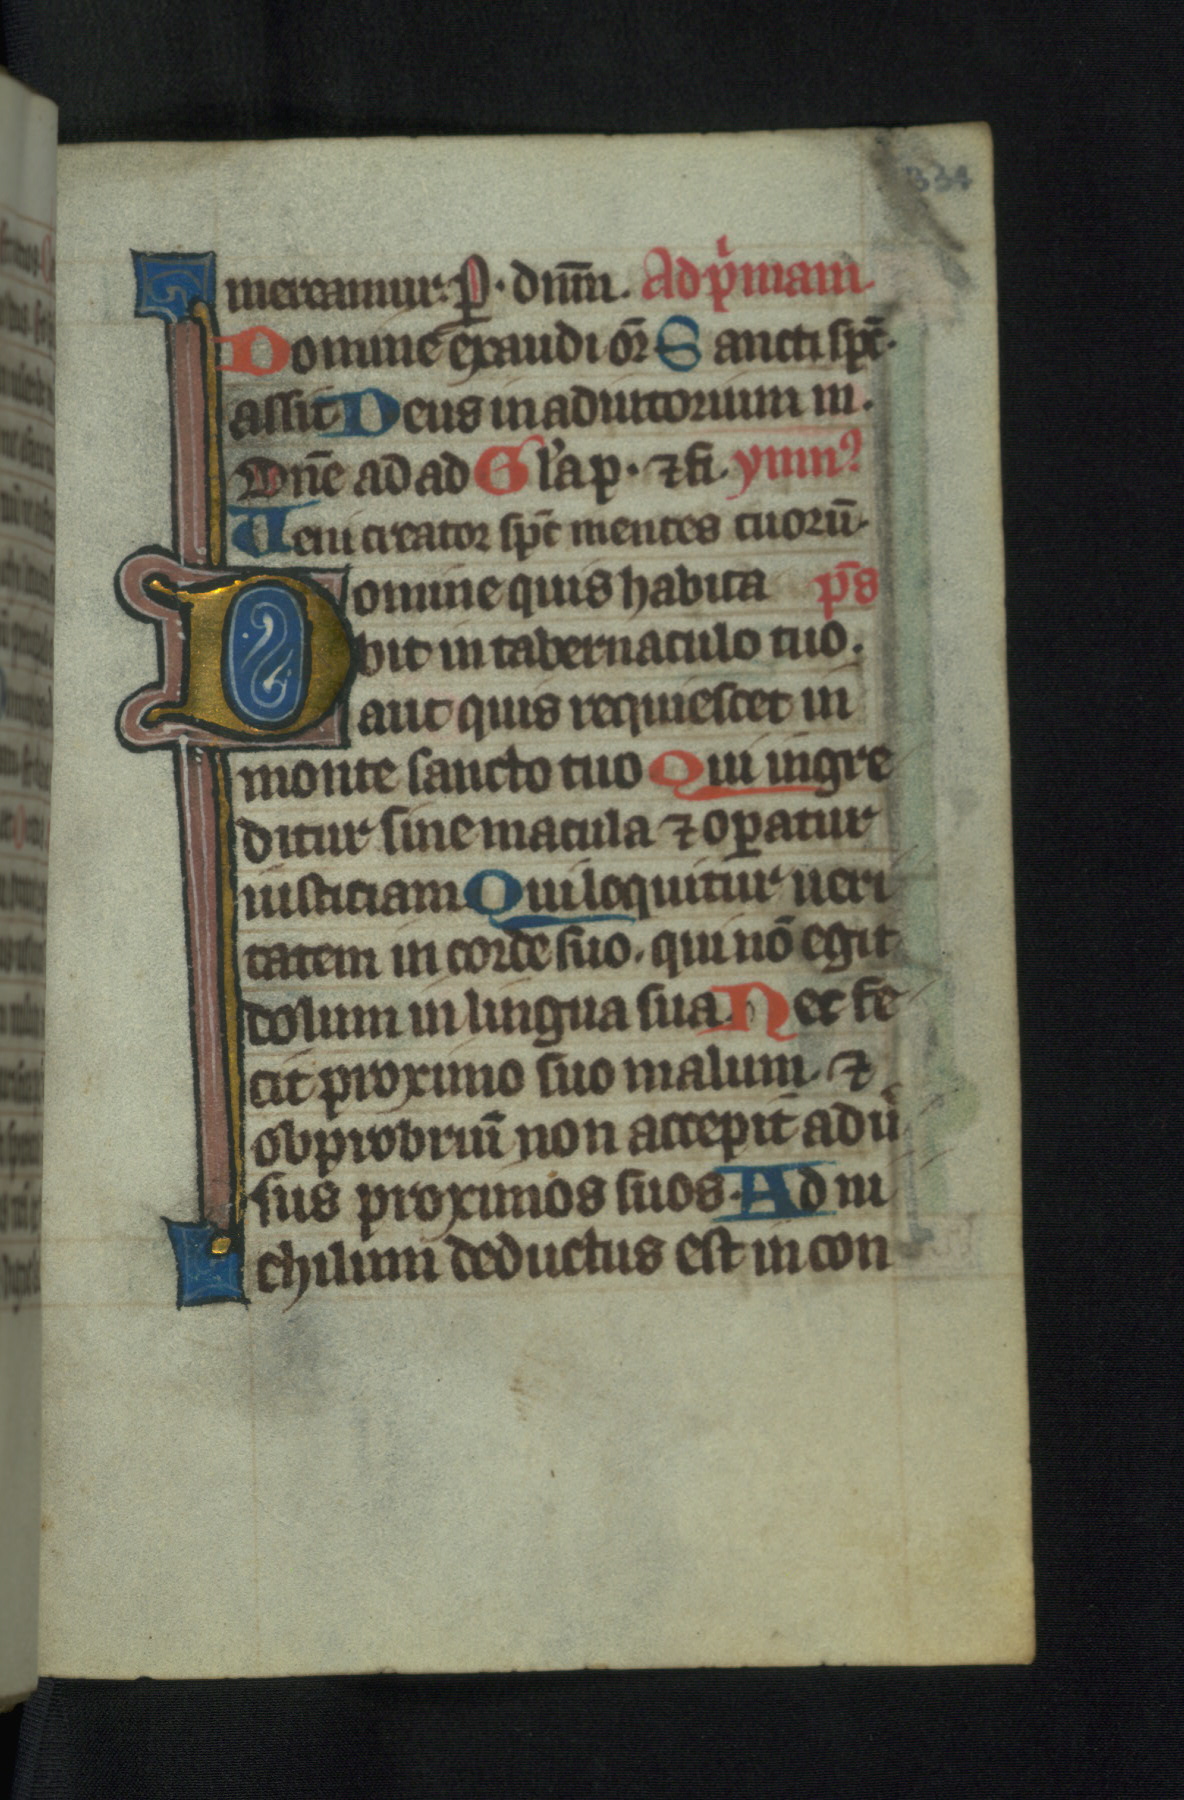 334
mereamur. P̱. dnm̄. Ad p̍mam
Domine exaudi or̄ Sancti spc̄.
assit Deus in adiutorium m.
Dnē ad ad Gl̍a p. ⁊ fi. ymn
Veni creator spc̄ mentes tuorū.
Domine quis habita p̄s
bit in tabernaculo tuo.
aut quis requiescet in
monte sancto tuo Qui ingre
ditur sine macula ⁊ oꝑatur
iusticiam Qui loquitur ueri
tatem in corde suo. qui nō egit
dolum in lingua sua. Nec fe
cit proximo suo malum. ⁊
obprobriū non accepit adu̍
sus proximos suos. Ad ni
chilum deductus est in con